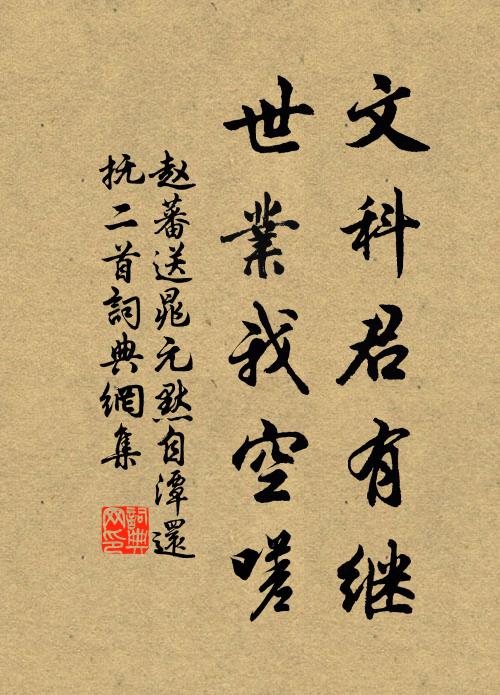 文科君有继
世業我空嗟
赵蕃送晁元默自潭還
抚二首詞典網集
詞典网印